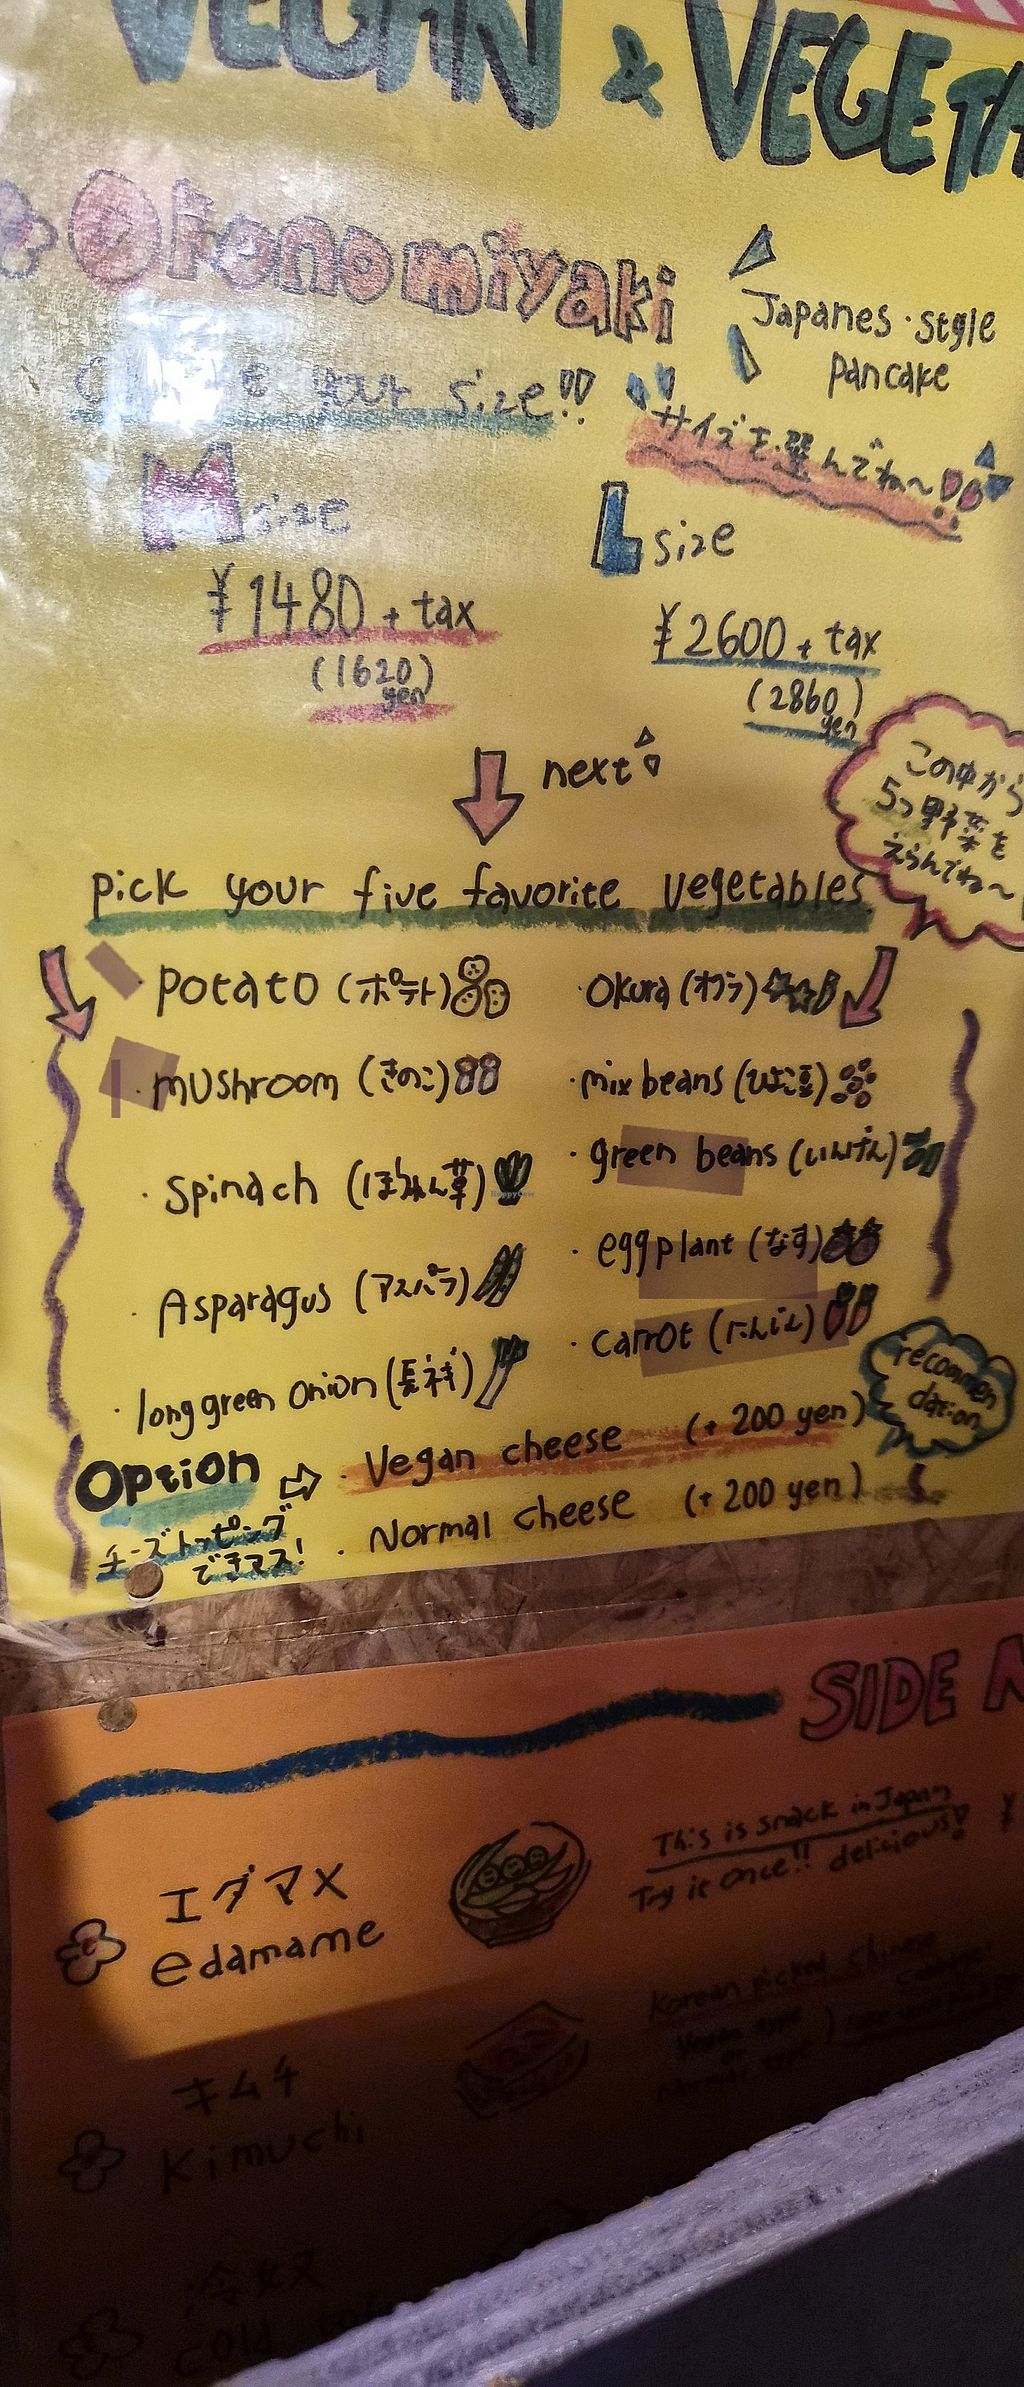 VEGAN & VEGETA
Okonomiyaki
Japanes・style
pancake
your size!!
サイズを選んでね〜!!
M size
L size
¥1480 + tax
(1620)
yen
¥2600 + tax
(2860)
yen
next
この中から
5つ野菜を
えらんでね〜
pick your five favorite vegetables
potato (ポテト)
・okura (オクラ)
・mushroom (きのこ)
・mix beans (ひよこ豆)
・green beans (いんげん)
・spinach (ほうれん草)
・eggplant (なす)
・Asparagus (アスパラ)
・carrot (にんじん)
・long green onion (長ネギ)
recommen
dation
Option
・Vegan cheese (+ 200 yen)
・Normal cheese (+ 200 yen)
チーズトッピング
できマス!
SIDE
エダマメ
edamame
This is snack in Japan
Try it once!! delicious!
¥
キムチ
Kimuchi
Korean picked chinese
冷奴
cold
HappyCow